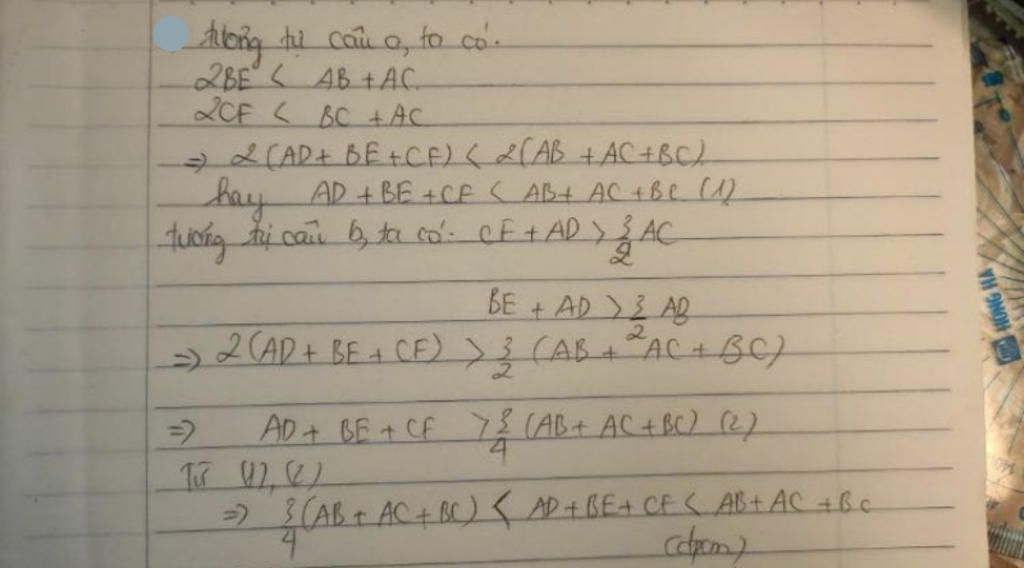 tương tự câu a, ta có.
2BE < AB + AC.
2CF < BC + AC
=> 2(AD + BE + CF) < 2(AB + AC + BC)
hay AD + BE + CF < AB + AC + BC (1)
tương tự câu b, ta có: CF + AD > 3/2 AC
BE + AD > 3/2 AB
=> 2(AD + BE + CF) > 3/2 (AB + AC + BC)
=> AD + BE + CF > 3/4 (AB + AC + BC) (2)
Từ (1), (2)
=> 3/4 (AB + AC + BC) < AD + BE + CF < AB + AC + BC
(đpcm)
HONG HA